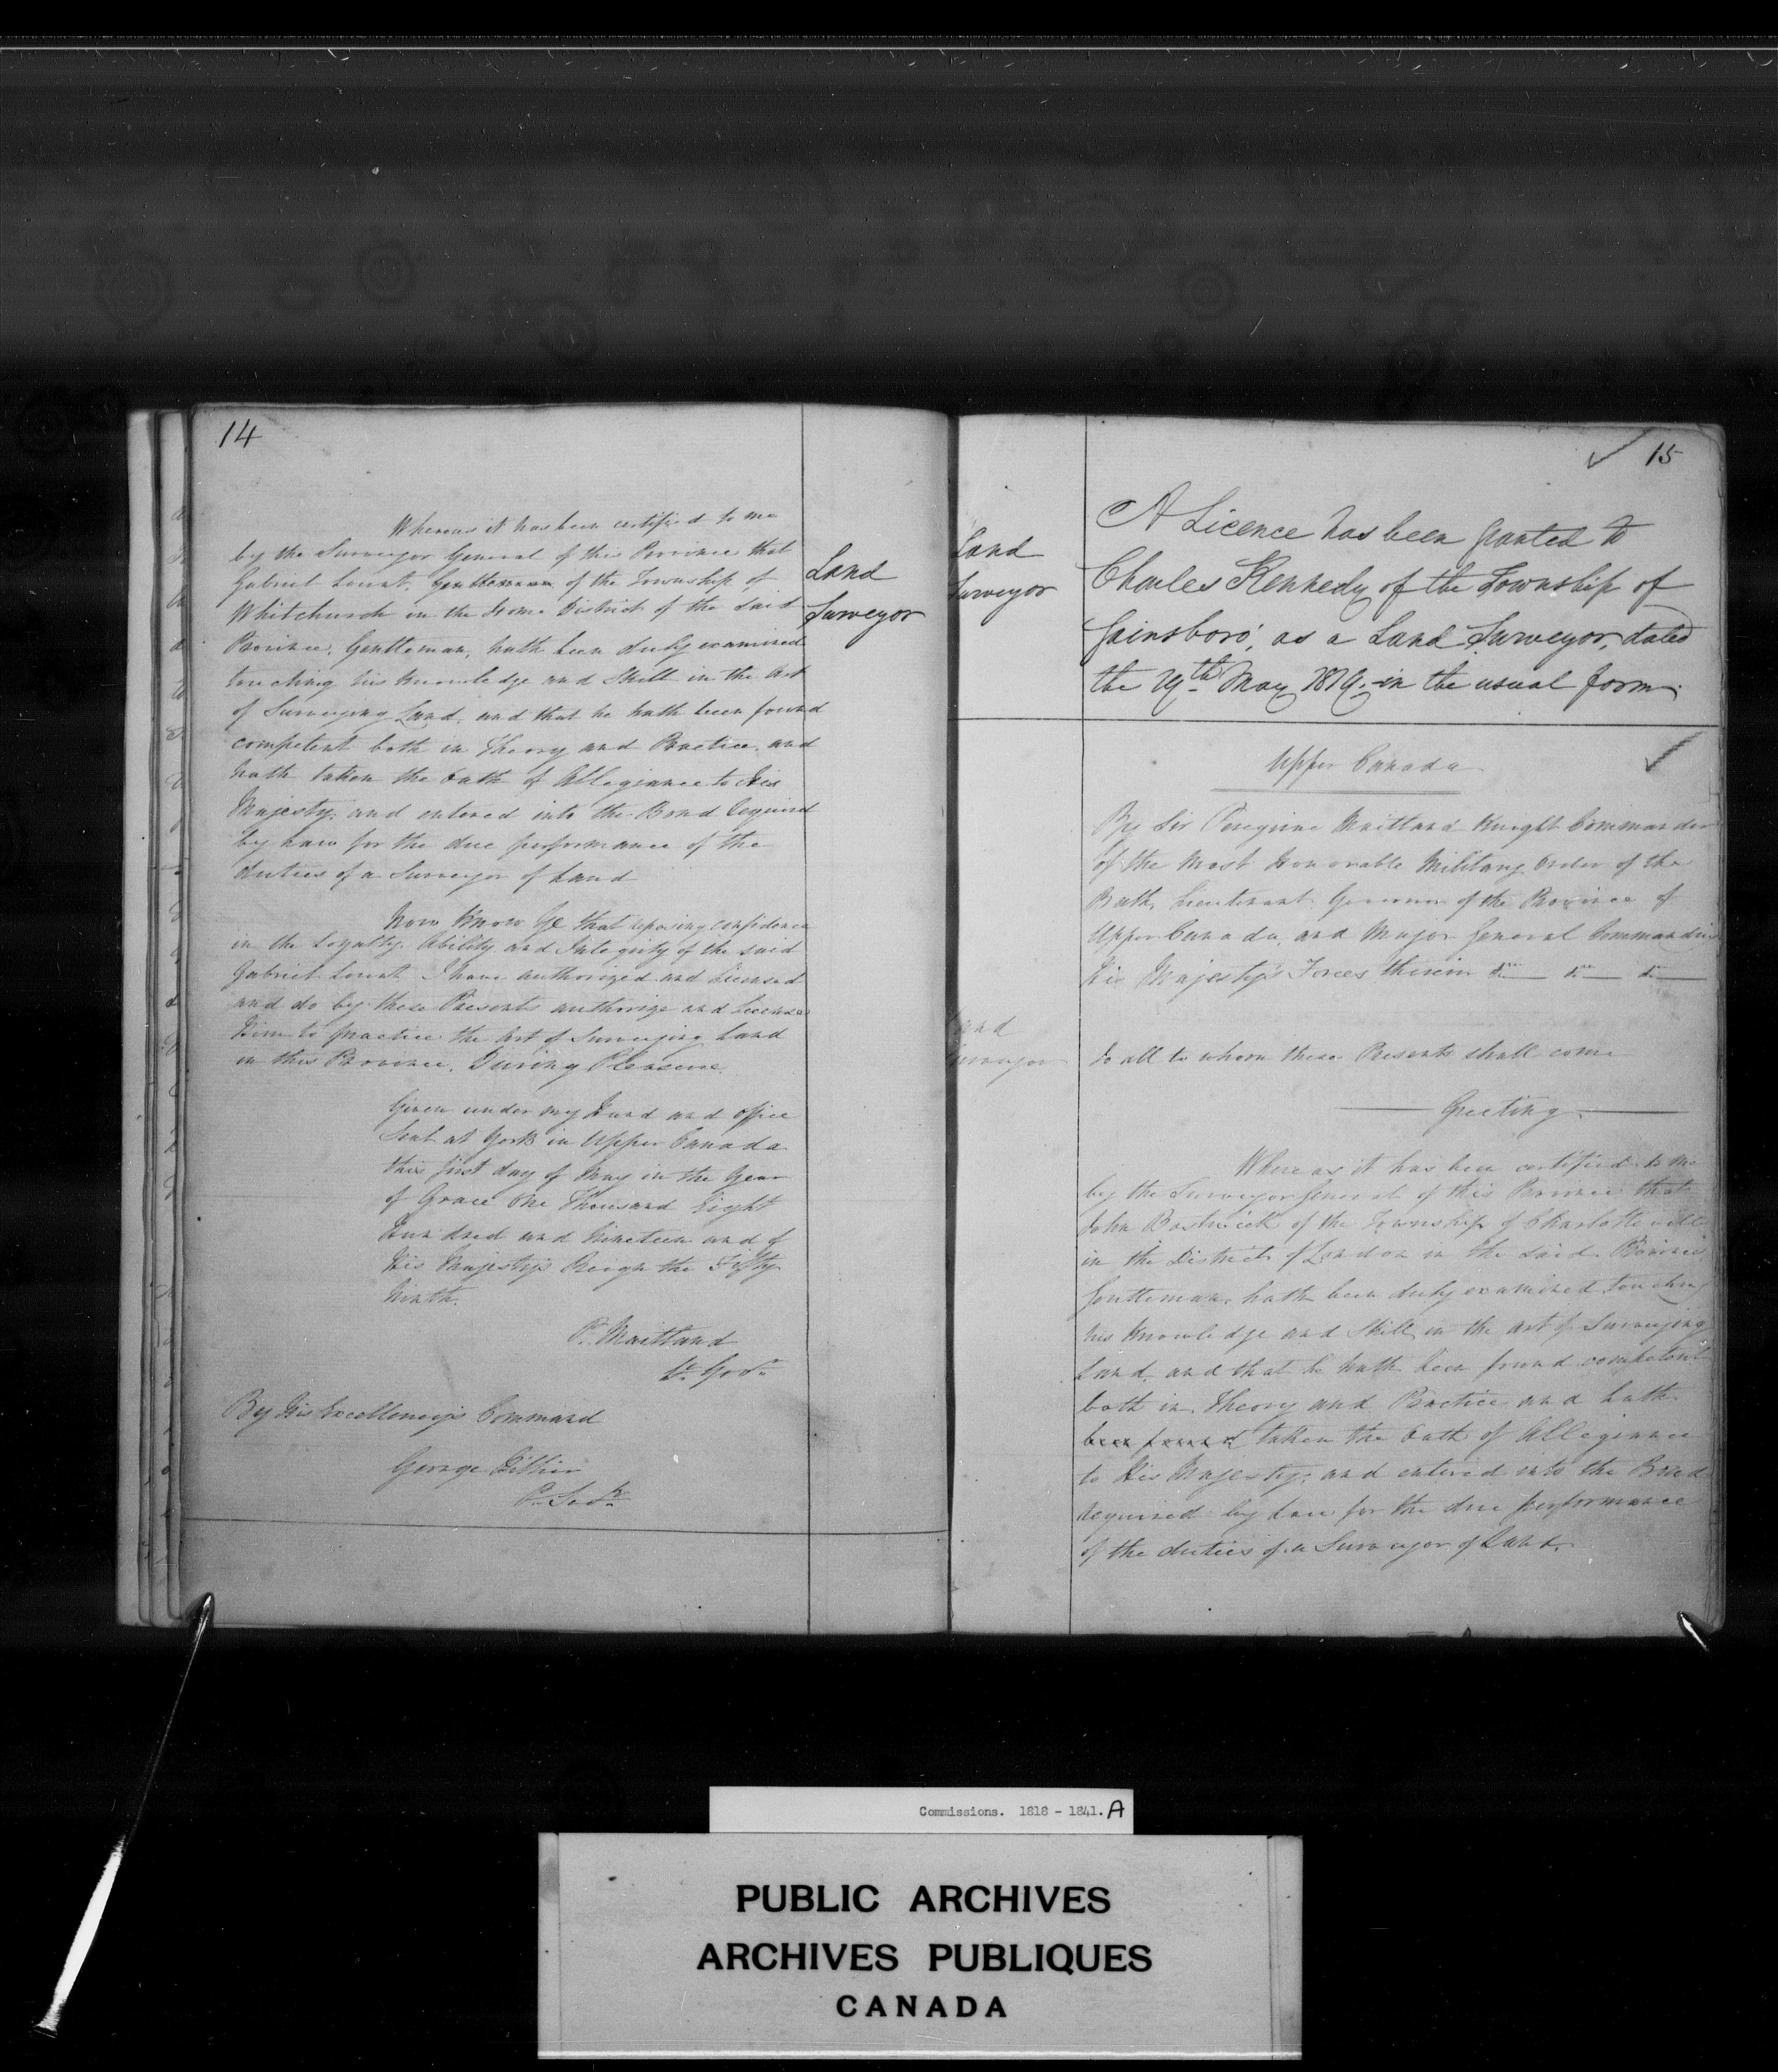 14
Whereas it has been certified to me
by the Surveyor General of this Province that
Gabriel Lount, Gentleman of the Township of
Whitchurch in the Home District of the said
Province, Gentleman, hath been duly examined
touching his knowledge and Skill in the Art
of Surveying Land, and that he hath been found
competent both in Theory and Practice, and
hath taken the Oath of Allegiance to His
Majesty, and entered into the Bond required
by Law for the due performance of the
duties of a Surveyor of Land
Now Know Ye that reposing confidence
in the Loyalty, Ability and Integrity of the said
Gabriel Lount I have authorized and licensed
and do by these Presents authorize and license
him to practice the Art of Surveying Land
in this Province, During Pleasure.
Given under my Hand and office
Seal at York in Upper Canada
this first day of May in the Year
of Grace One Thousand Eight
Hundred and Nineteen and of
His Majesty's Reign the Fifty
Ninth.
P. Maitland
Lt. Govr.
By His Excellency's Command
George Hillier
P. Secy.
Land
Surveyor
15
Land
Surveyor
A Licence has been granted to
Charles Kennedy of the Township of
Gainsboro', as a Land Surveyor, dated
the 19th May 1819. in the usual form.
Upper Canada
By Sir Peregrine Maitland Knight Commander
of the Most Honorable Military Order of the
Bath, Lieutenant Governor of the Province of
Upper Canada, and Major General Commanding
His Majesty's Forces therein
Land
Surveyor
To all to whom these Presents shall come
Greeting.
Whereas it has been certified to me
by the Surveyor General of this Province that
John Bostwick of the Township of Charlotteville
in the District of London in the said Province
Gentleman, hath been duly examined touching
his knowledge and Skill in the art of Surveying
Land, and that he hath been found competent
both in Theory and Practice and hath
been found taken the Oath of Allegiance
to His Majesty, and entered into the Bond
required by Law for the due performance
of the duties of a Surveyor of Land.
Commissions. 1818 - 1841. A
PUBLIC ARCHIVES
ARCHIVES PUBLIQUES
CANADA